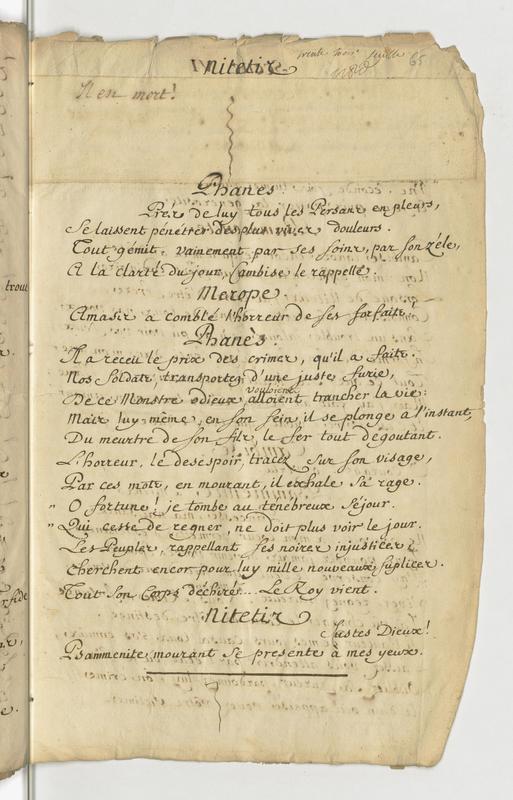 Nitetis
trente trois feuille 65
Il en mort!
Phanès
Près de luy tous les Persans en pleurs,
Se laissent pénétrer des plus vives douleurs.
Tout gémit, vainement par ses soins, par son zéle,
A la clarté du jour, Cambise le rappelle.
Merope.
Amasis a comblé l'horreur de ses forfaits!
Phanès
Il a receu le prix des crimes, qu'il a faits.
Nos Soldats transportez d'une juste furie,
vouloient
De ce Monstre odieux alloient trancher la vie:
Mais luy-même, en son sein, il se plonge à l'instant,
Du meurtre de son fils, le fer tout dégoutant.
L'horreur, le desespoir, tracez sur son visage,
Par ces mots, en mourant, il exhale sa rage.
" O fortune! je tombe au tenebreux séjour.
" Qui cesse de regner, ne doit plus voir le jour.
Les Peuples, rappellant ses noires injustices,
Cherchent encor pour luy mille nouveaux suplices.
Tout son Corps déchiré... Le Roy vient.
Nitetis
Justes Dieux!
Psammenite mourant se presente à mes yeux.